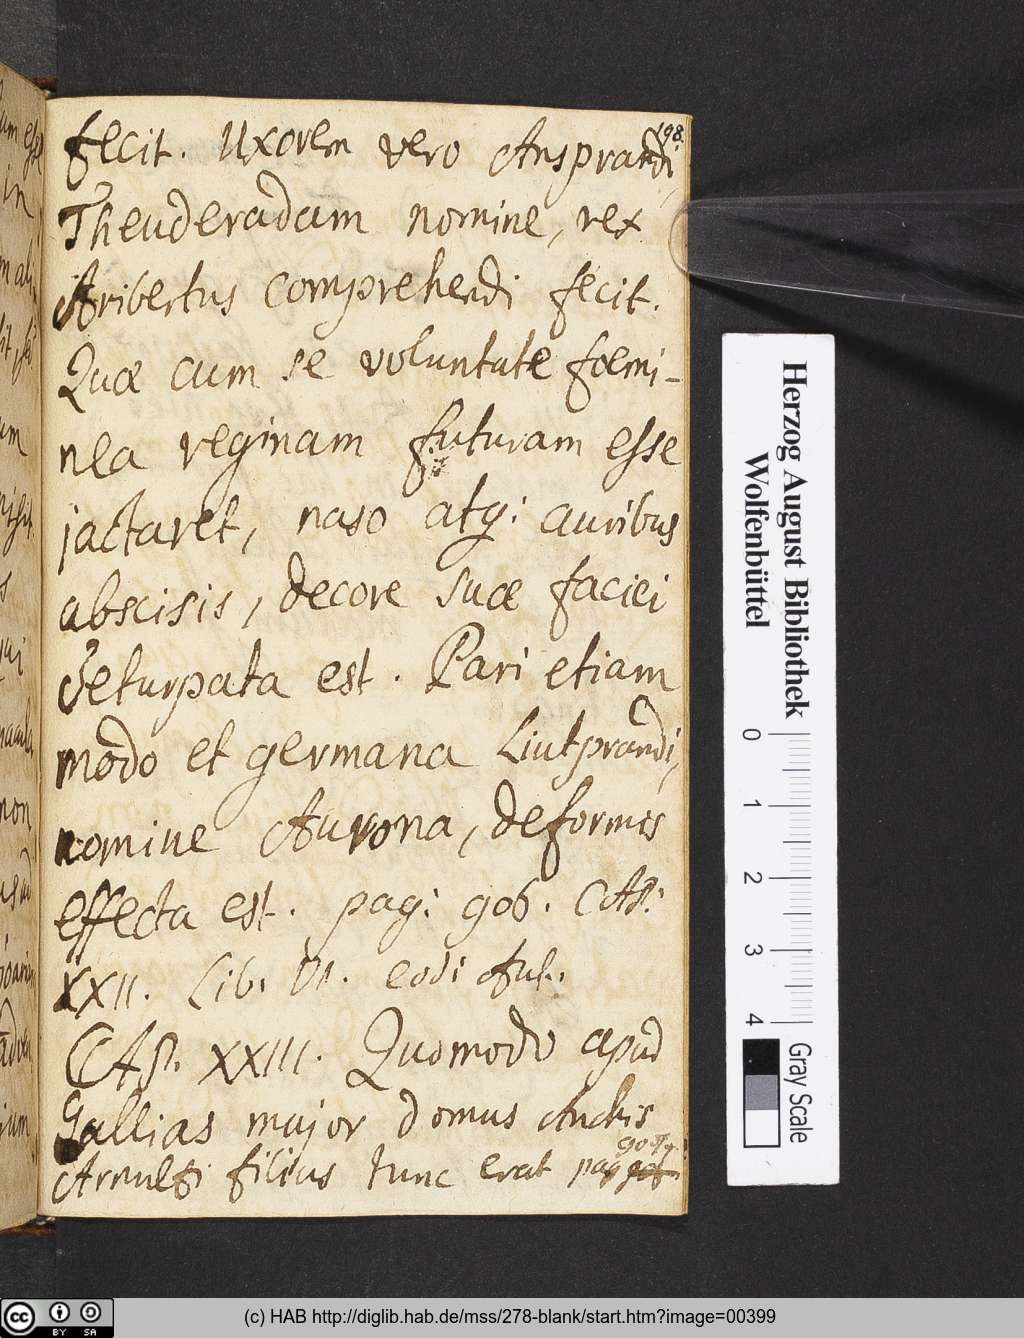 198.
fecit. Uxorem vero Ansprandi,
Theuderadam nomine, rex
Aribertus comprehendi fecit.
Quæ cum se voluntate fœmi-
nea reginam futuram esse
jactaret, naso atq: auribus
abscisis, decore suæ faciei
deturpata est. Pari etiam
modo et germana Liutprandi,
nomine Aurona, deformis
effecta est. pag: 906. CAP:
XXII. Lib. VI. eod: Aut.
CAP. XXIII. Quomodo apud
Gallias major domus Anchis
Arnulfi filius tunc erat pag
Herzog August Bibliothek
Wolfenbüttel
0 1 2 3 4
Gray Scale
(c) HAB http://diglib.hab.de/mss/278-blank/start.htm?image=00399
cc BY SA